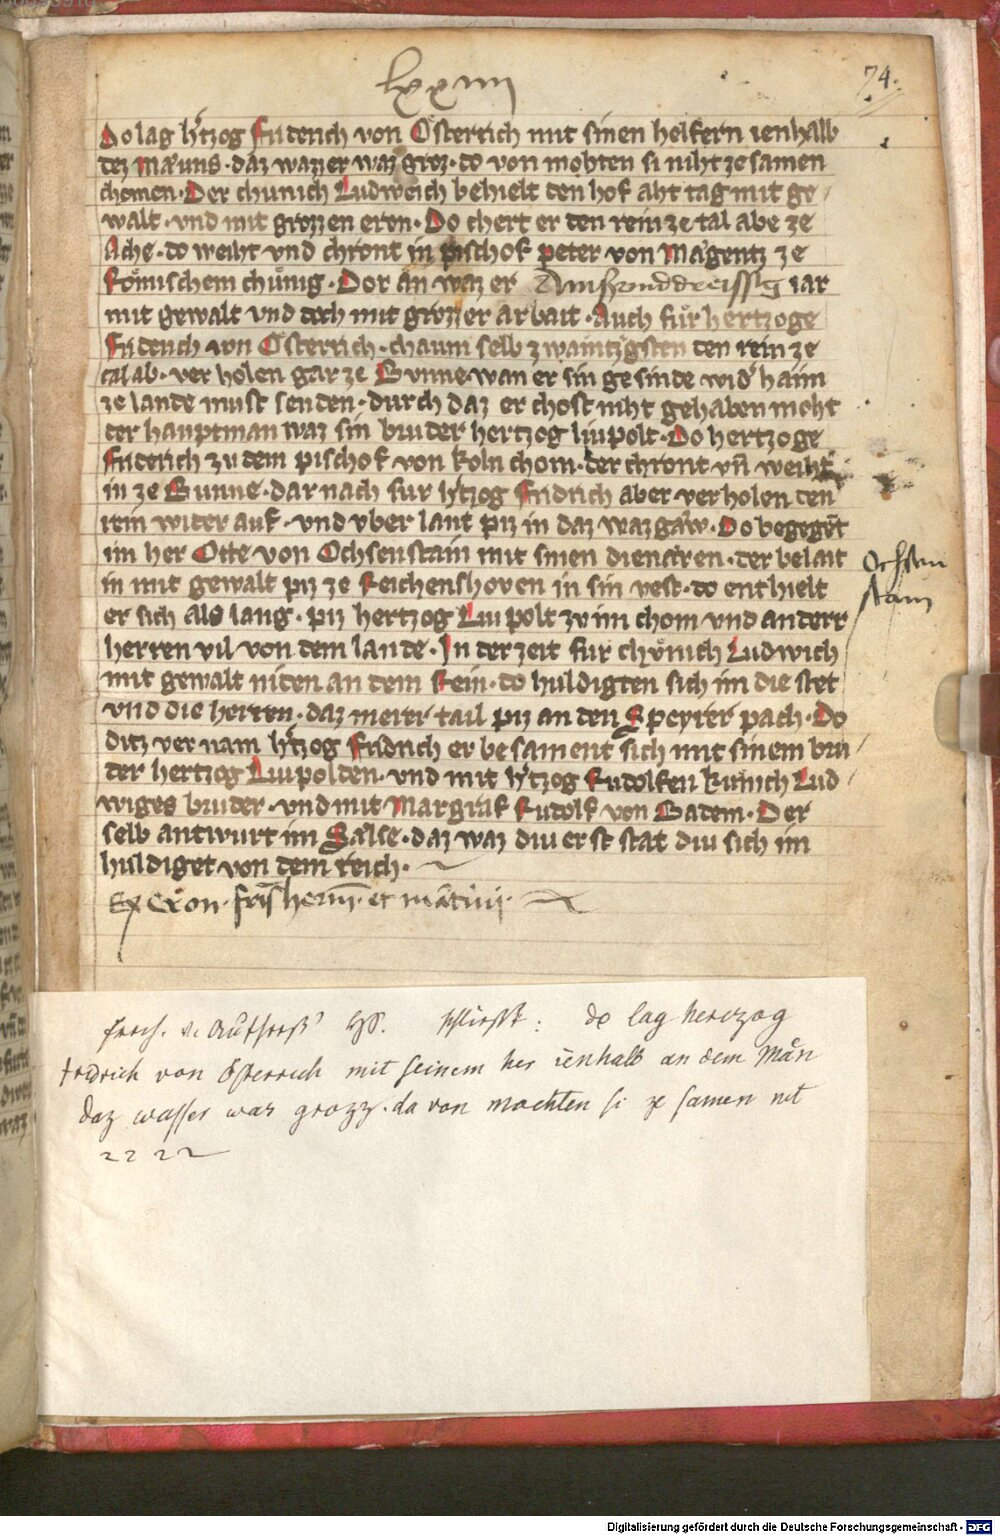 lxxiiii
74.
Do lag h'tzog Friderich von Österrich mit sinen helfern ienhalb
dez Mæuns · daz wazzer waz groz · do von mohten si niht zesamen
chomen · Der chunich Ludweich behielt den hof aht tag mit ge
walt · vnd mit grozzen eren · Do chert er den rein ze tal abe ze
Ache · do weiht vnd chront in pischof peter von Mægentz ze
Römischem chünig · Dor an waz er ainsunddreissig iar
mit gewalt vnd doch mit grozzer arbait · Auch für hertzoge
Friderich von Österrich · chaum selb zwaintzigsten den rein ze
tal ab · ver holen gar ze Bunne · wan er sin gesinde wid' haim
ze lande must senden · durch daz er chost niht gehaben moht
der hauptman waz sin bruder hertzog liupolt · Do hertzoge
Friderich zu dem pischof von koln chom · der chront vn̄ weiht
in ze Bunne · dar nach fur h'tzog Fridrich aber verholen den
rein wider auf · vnd vber lant piz in daz wazgæw · Do begegēt
im her Otte von Ochsenstain mit sinen dienæren · der belait
in mit gewalt piz ze Reichenshoven in sin vest · do enthielt
er sich als lang · piz hertzog Liupolt zu im chom vnd anderr
herren vil von dem lande · In der zeit fur chünich Ludwich
mit gewalt niden an dem Rein · do huldigten sich im die stet
vnd die herren · daz merer tail piz an den Speyrer pach · Do
ditz ver nam h'tzog Fridrich er besament sich mit sinem bru
der hertzog Liupolden · vnd mit h'tzog Rudolfen kunich Lud
wiges bruder · vnd mit Margraf Rudolf von Badem · Der
selb antwurt im Sælse · daz waz diu erst stat diu sich im
huldiget von dem reich ·
Ochsen
stain
Ex Cron · fris hermi · et martini ·
Frch. v. Aufseß' HS. schließt: do lag herczog
fridrich von österreich mit seinem her ienhalb an dem Män
daz wasser waz grozz · da von mochten si ze samen nit